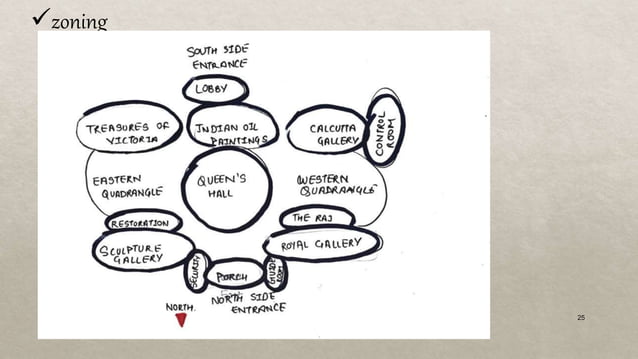 ✓zoning
SOUTH SIDE
ENTRANCE
LOBBY
TREASURES OF
VICTORIA
INDIAN OIL
PAINTINGS
CALCUTTA
GALLERY
CONTROL
ROOM
EASTERN
QUADRANGLE
QUEEN'S
HALL
WESTERN
QUADRANGLE
RESTORATION
THE RAJ
SCULPTURE
GALLERY
ROYAL GALLERY
SECURITY
PORCH
GUIDE
ROOM
NORTH SIDE
ENTRANCE
NORTH.
25